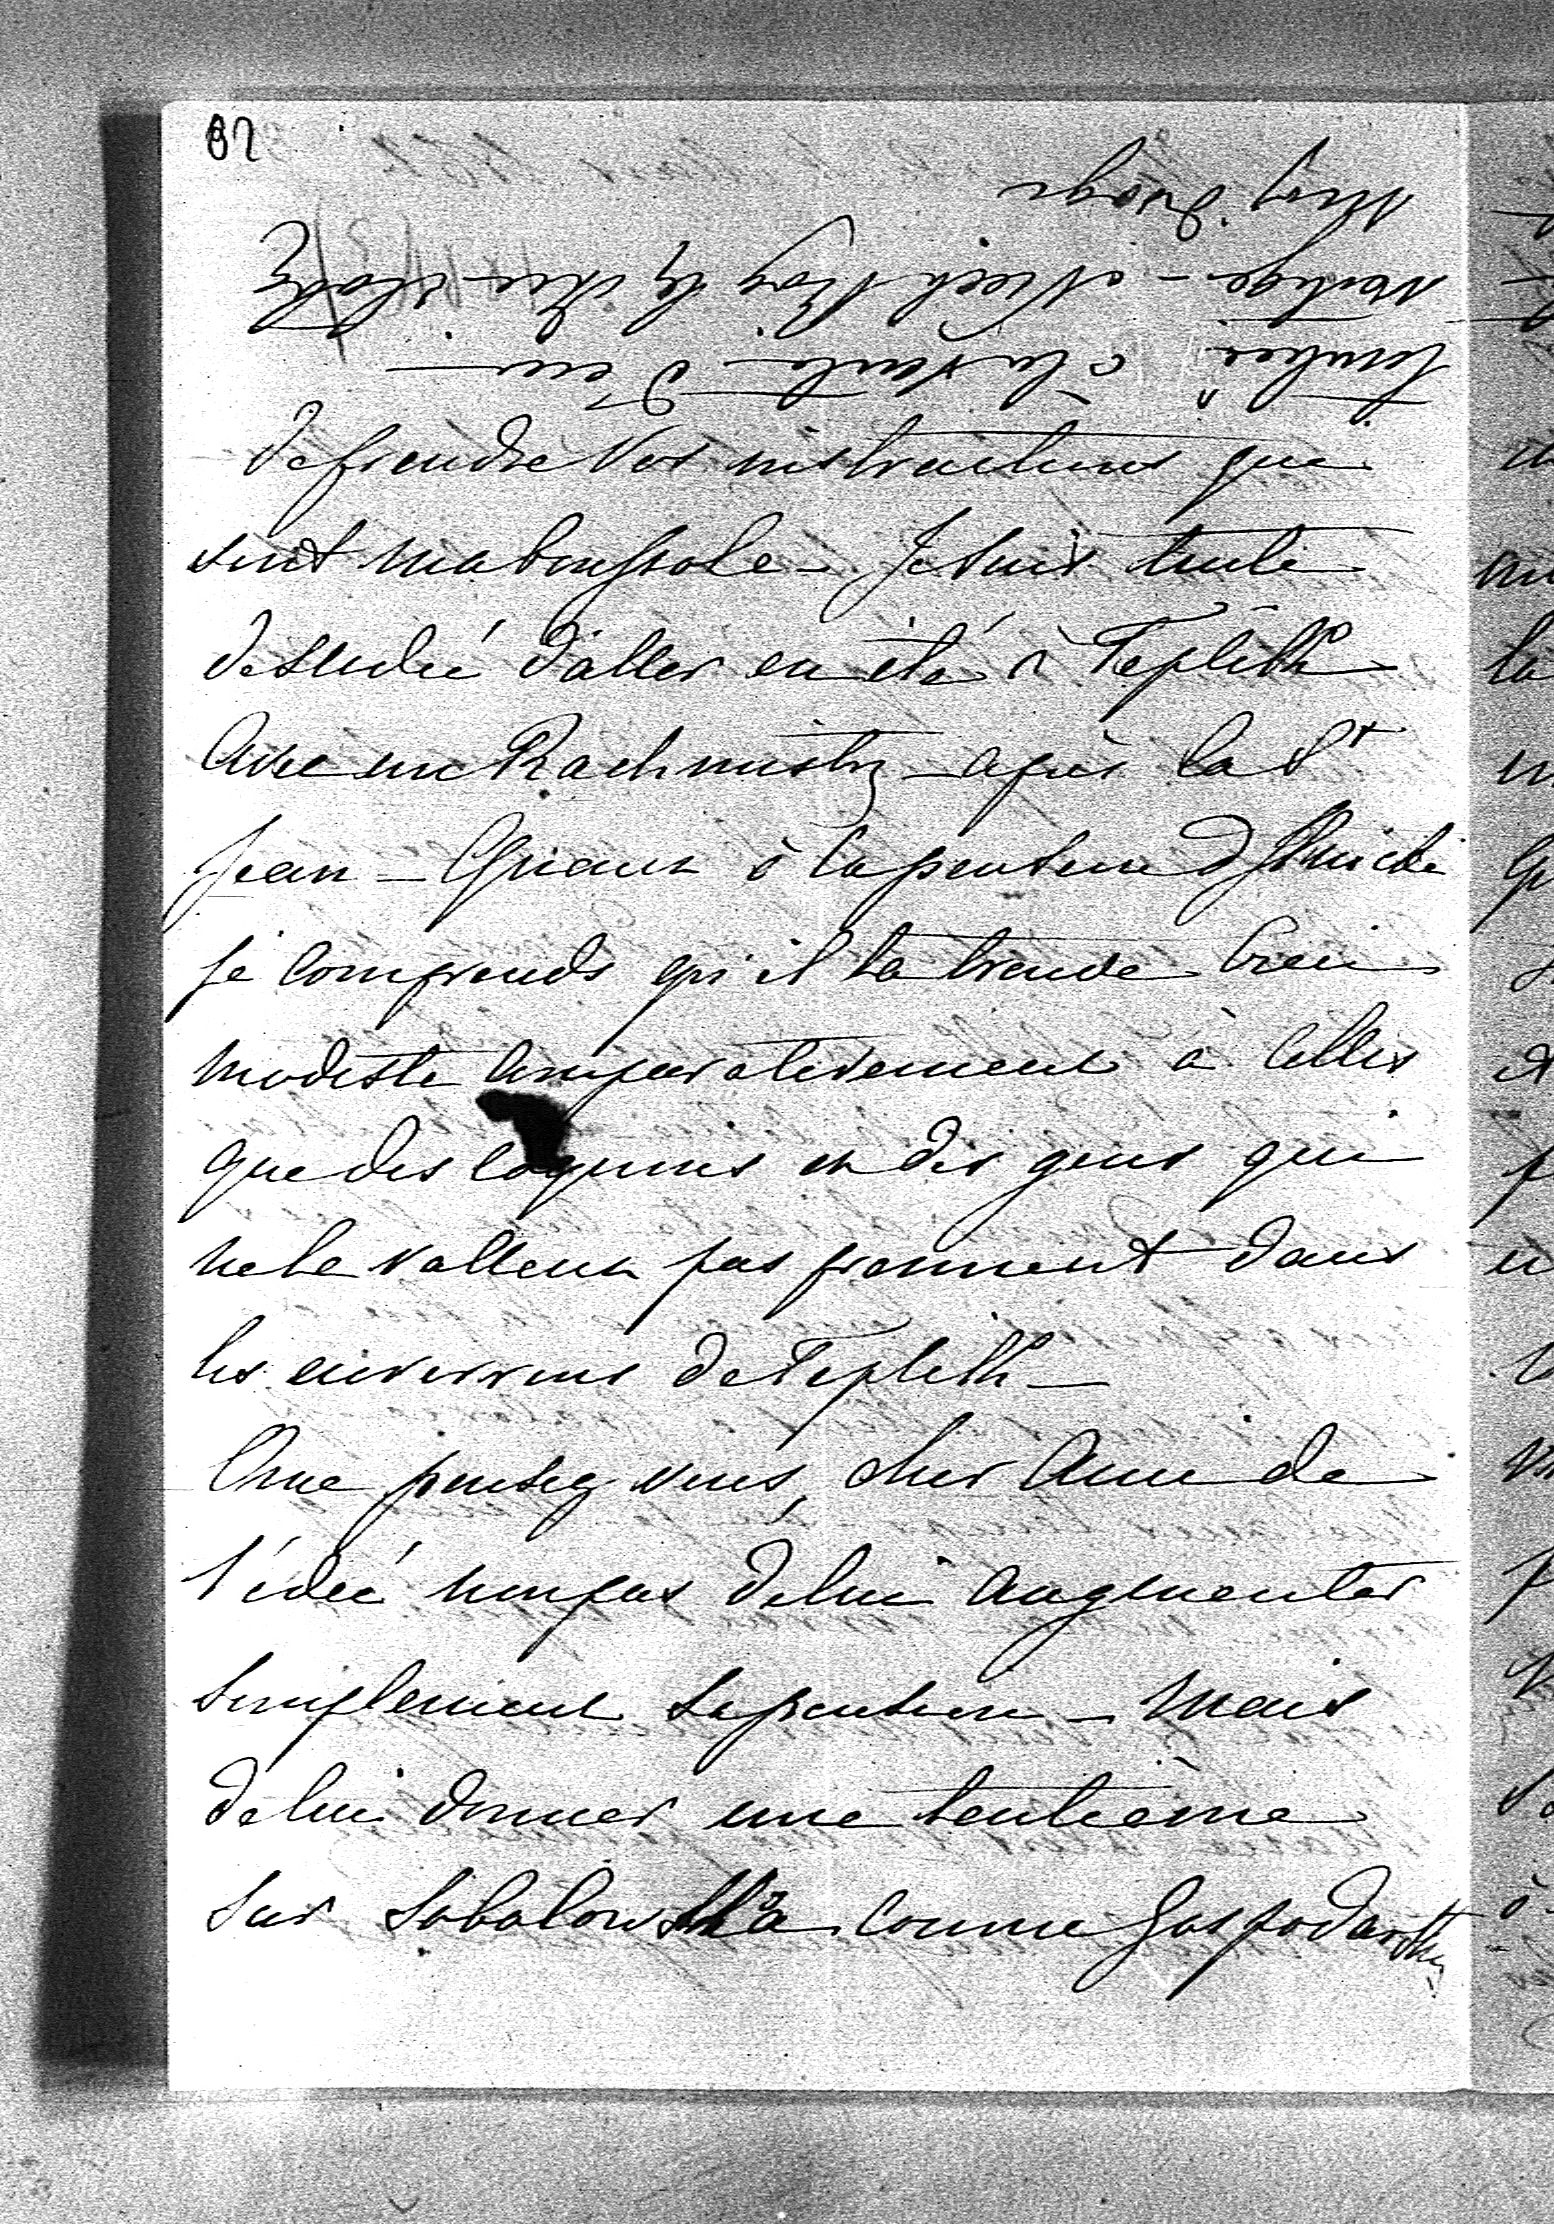 82
de prendre vos instructions que
sont ma boussole – Je suis tenté
decidé d'aller en été à Teplitk
avec un Rachmistrz – après la St
Jean – Quant à la pention d
je comprends qu'il la trouve bien
modeste comparativement à celles
que des coquins et des gens qui
ne le vallent pas prennent dans
les envirrons de Teplitk –
Que pensez vous, cher Ami de
l'idée non pas de lui augmenter
simplement sa pention – mais
de lui donner une tentième
sur Sobolowka comme
tombée à la
vertige – Niech Bóg Cię
Moj drogi